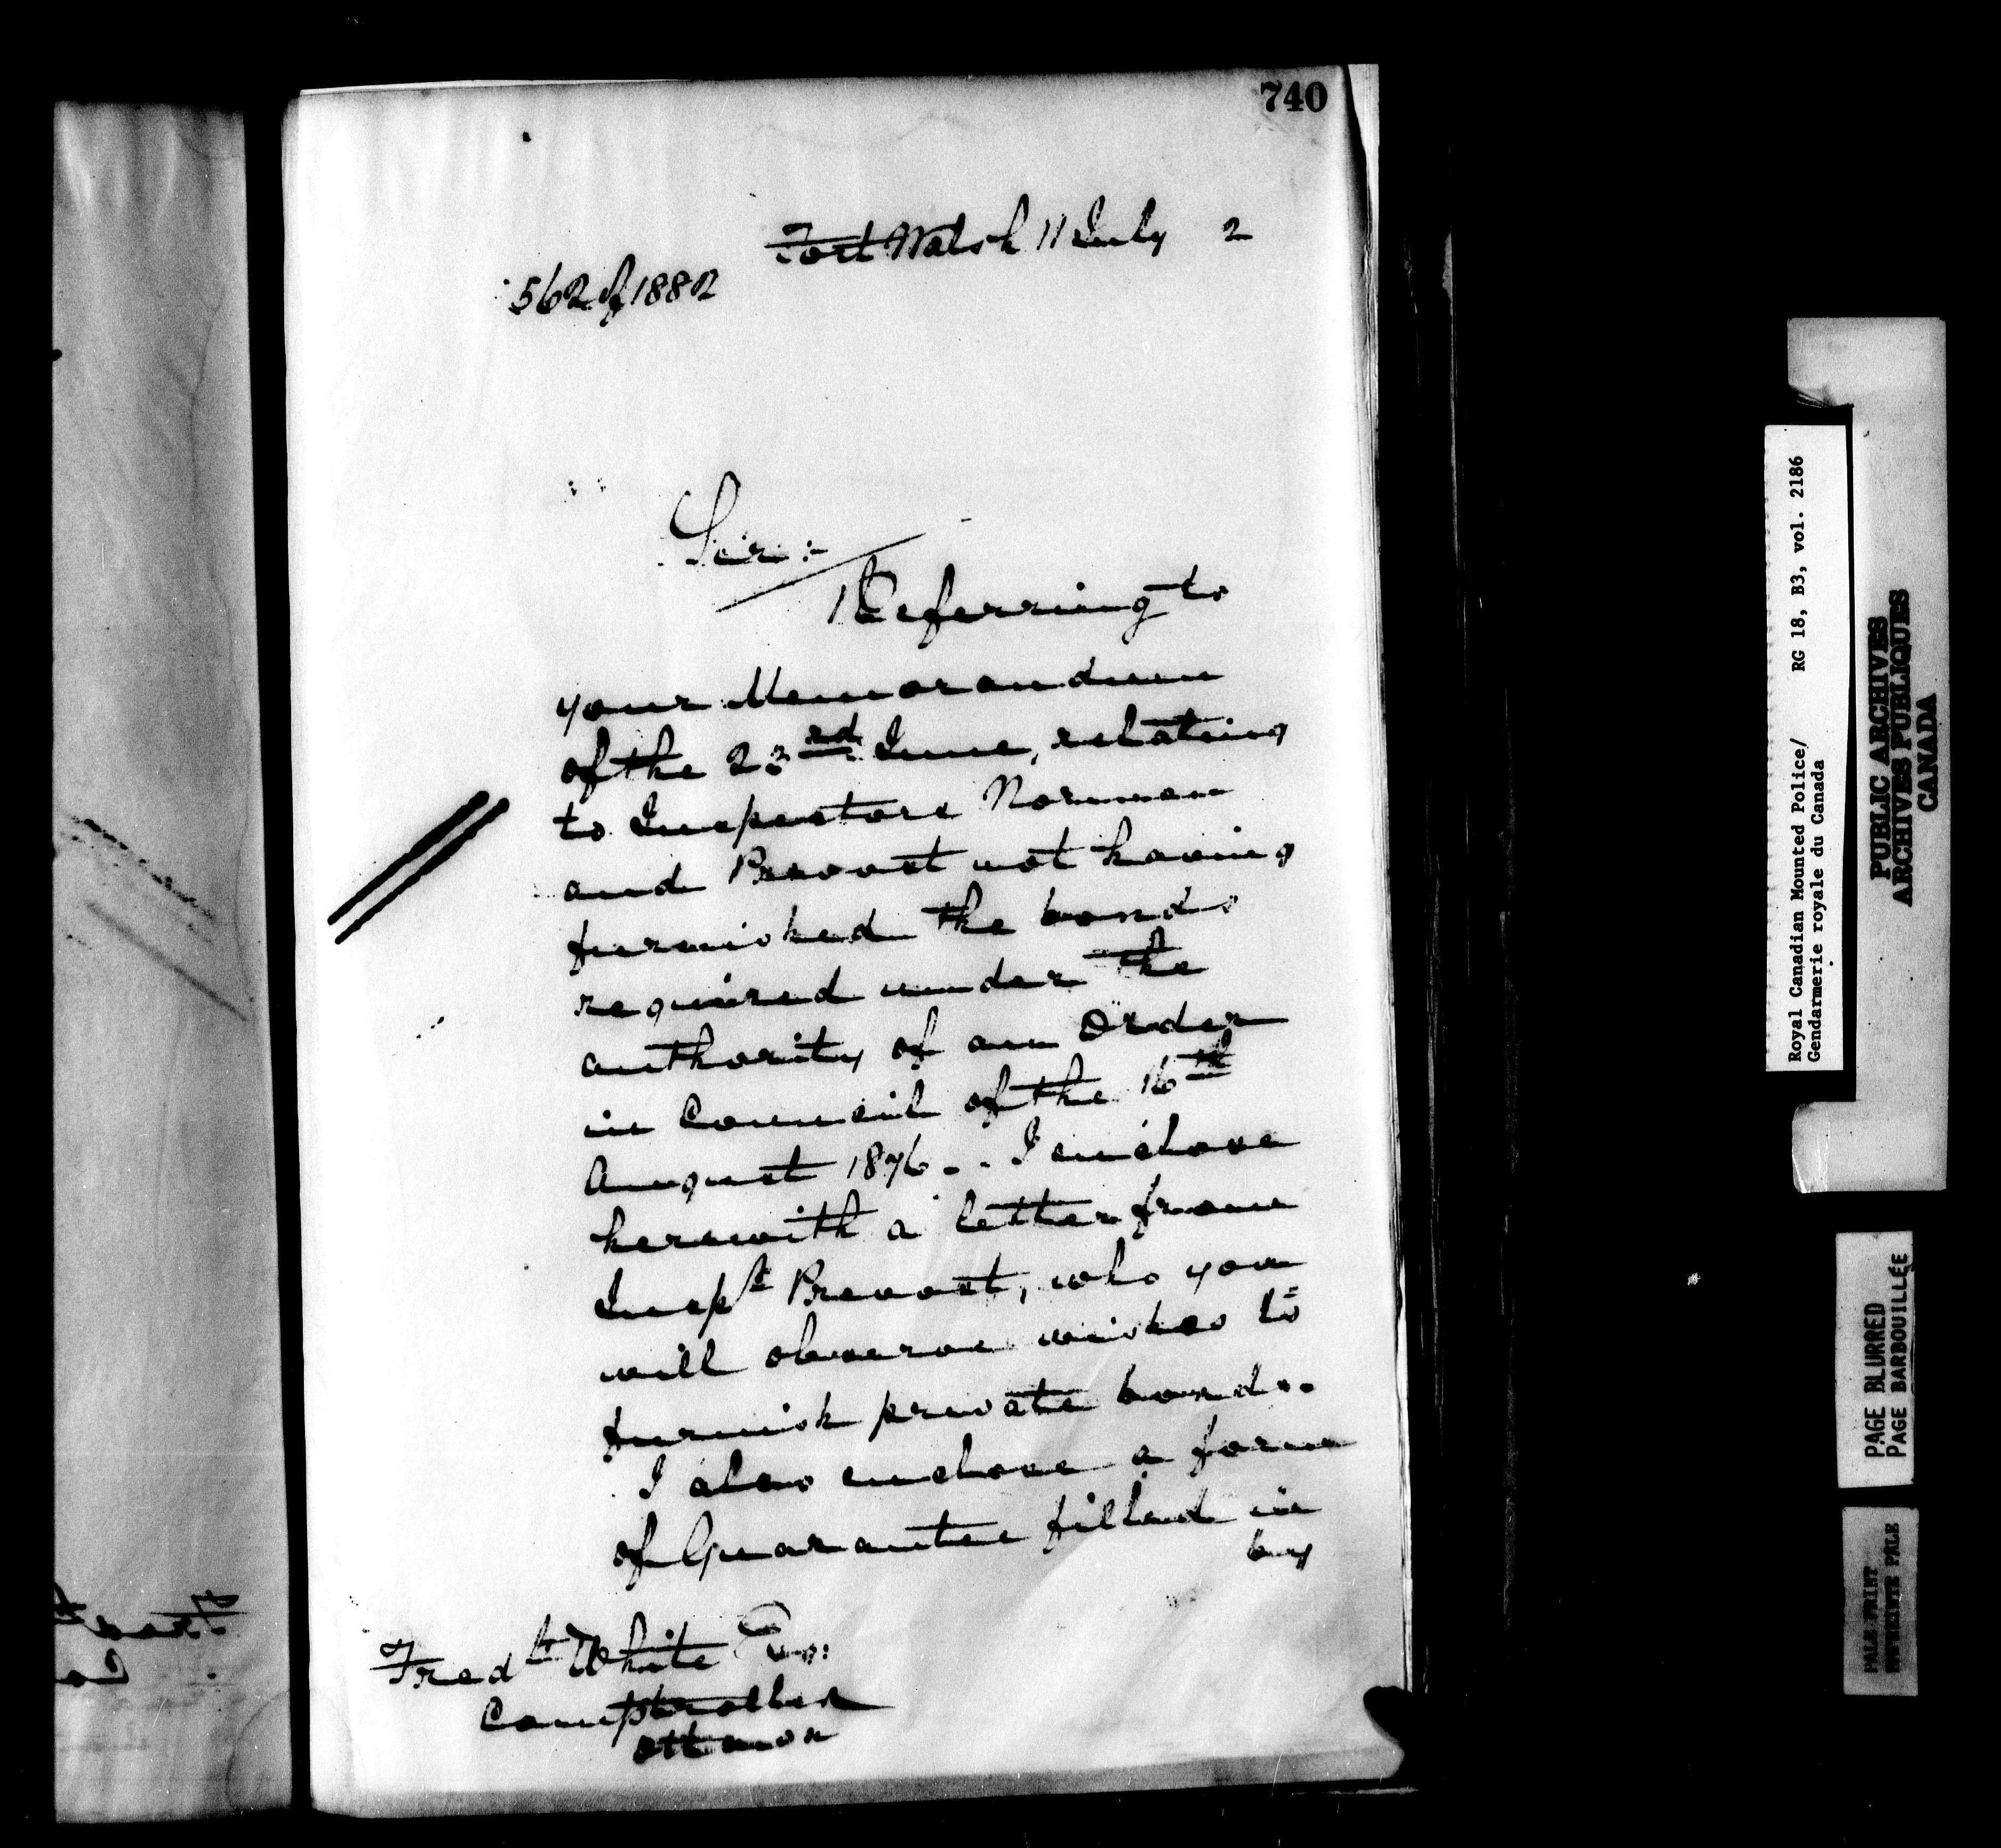 740
Fort Walsh 11 July 2
562 of 1882
Sir:-
Referring to
your Memorandum
of the 23rd June, relating
to Inspectors Norman
and Prevost not having
furnished the bonds
required under the
authority of an Order
in Council of the 16th
August 1876 - . I enclose
herewith a letter from
Inspr Prevost, who you
will observe wishes to
furnish private bonds.
I also enclose a form
of Guarantee filled in
by
Fredk White Esq:
Comptroller
Ottawa
Royal Canadian Mounted Police/ RG 18, B3, vol. 2186
Gendarmerie royale du Canada
PUBLIC ARCHIVES
ARCHIVES PUBLIQUES
CANADA
PAGE BLURRED
PAGE BARBOUILLÉE
PALE PRINT
PALE